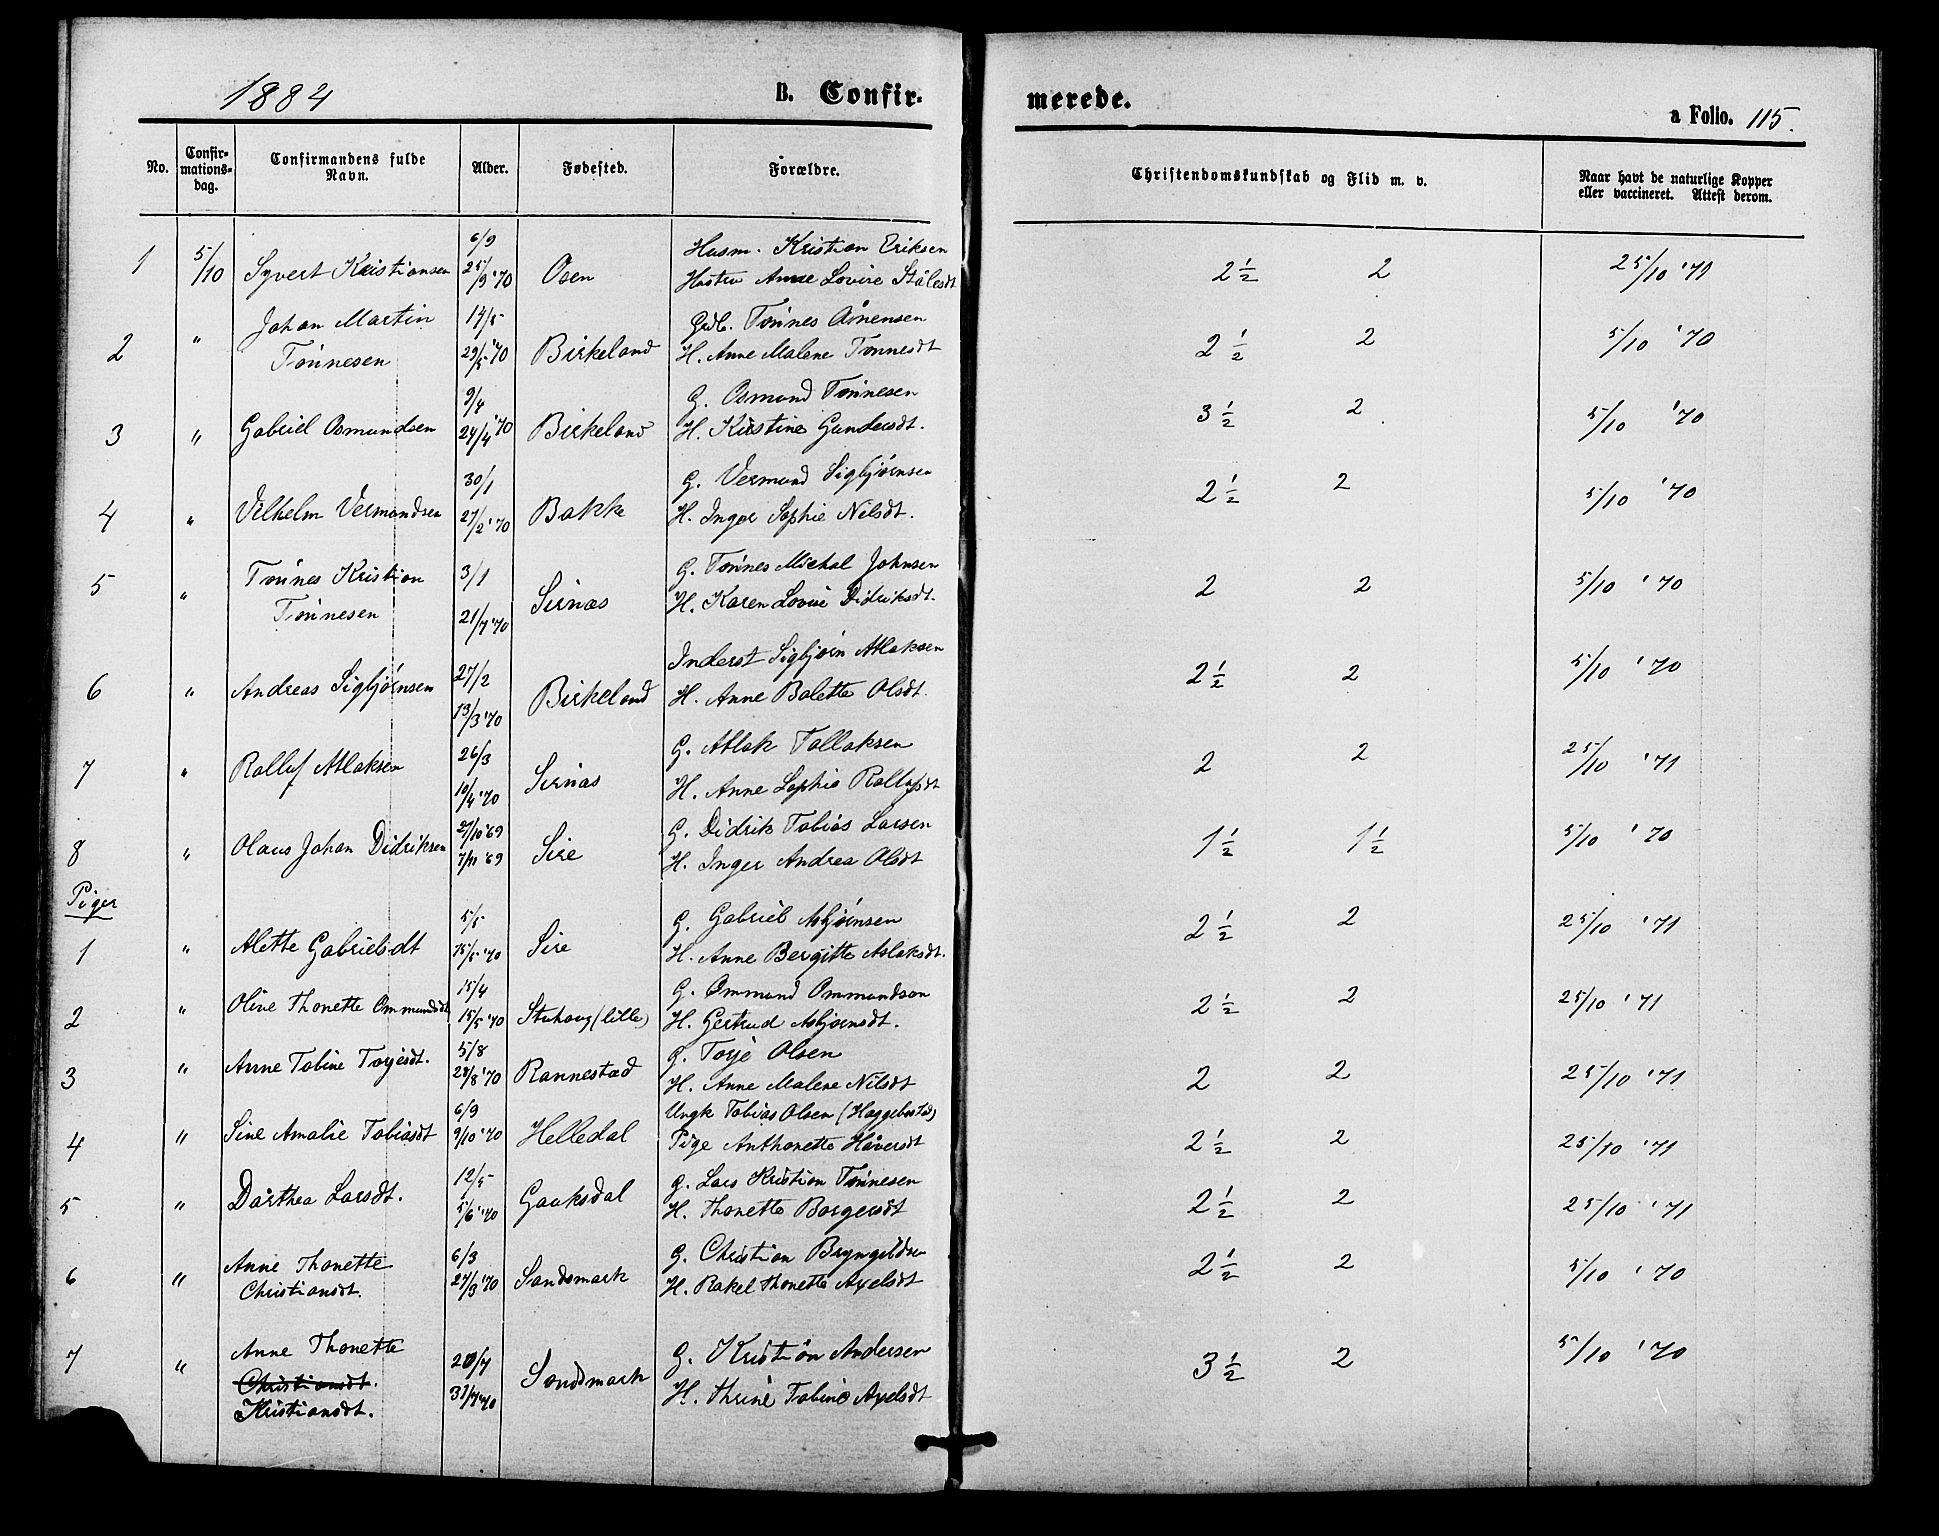 1884
B. Confir-
merede.
a Folio. 115.
No.
Confir-
mations-
dag.
Confirmandens fulde
Navn.
Alder.
Fødested.
Forældre.
Christendomskundskab og Flid m. v.
Naar havt de naturlige Kopper
eller vaccineret. Attest derom.
6/9 Husm. Kristian Eriksen
1 5/10 Syvert Kristiansen 25/9 '70 Osen Hustru Anne Lovise Stålesdt 2 1/2 2 25/10 '71
Johan Martin 14/5 Grdb. Tønnes Aanensen
2 " Tønnesen 29/5 '70 Birkeland H. Anne Malene Tønnesdt 2 1/2 2 5/10 '70
9/4 G. Osmund Tønnesen
3 " Gabriel Osmundsen 24/4 '70 Birkeland H. Kirstine Gundersdt. 3 1/2 2 5/10 '70
30/1 G. Vermund Sigbjørnsen
4 " Vilhelm Vermundsen 27/2 '70 Bakke H. Inger Sophie Nilsdt. 2 1/2 2 5/10 '70
Tønnes Kristian 3/1 G. Tønnes Michal Johnsen
5 " Tønnesen 21/7 '70 Sirnæs H. Karen Lovise Didriksdt. 2 2 5/10 '70
27/2 Inderst Sigbjørn Atlaksen
6 " Andreas Sigbjørnsen 13/3 '70 Birkeland H. Anne Bolette Olsdt. 2 1/2 2 5/10 '70
26/3 G. Atlak Tollaksen
7 " Rolluf Atlaksen 10/4 '70 Sirnæs H. Anne Sophie Rollufsdt 2 2 25/10 '71
27/10 '69 G. Didrik Tobias Larsen
8 " Olaus Johan Didriksen 7/11 '69 Sire H. Inger Andrea Olsdt 1 1/2 1 1/2 5/10 '70
Piger
5/5 G. Gabriel Asbjørnsen
1 " Alette Gabrielsdt 15/5 '70 Sire H. Anne Bergitte Aslaksdt. 2 1/2 2 25/10 '71
15/4 G. Ommund Ommundsen
2 " Oline Thonette Ommundsdt 15/5 '70 Stuhaug (lille) H. Gertrud Asbjørnsdt. 2 1/2 2 25/10 '71
5/8 G. Torje Olsen
3 " Anne Tobine Torjesdt. 28/8 '70 Rannestad H. Anne Malene Nilsdt 2 2 25/10 '71
6/9 Ungk Tobias Olsen (Haggebostad)
4 " Sine Amalie Tobiasdt 9/10 '70 Helledal Pige Anthonette Håversdt 2 1/2 2 25/10 '71
12/5 G. Lars Kristian Tønnesen
5 " Dorthea Larsdt. 5/6 '70 Gauksdal H. Thonette Børgersdt 2 1/2 2 25/10 '71
Anne Thonette 6/3 G. Christian Bryngildsen
6 " Christiansdt. 27/3 '70 Sandsmark H. Rakel Thonette Axelsdt 2 1/2 2 5/10 '70
Anne Thonette G. Kristian Andersen
7 " Christiansdt. 20/7 Sandsmark 3 1/2 2 5/10 '70
Kristiansdt. 31/7 '70 H. Thrine Tobine Axelsdt